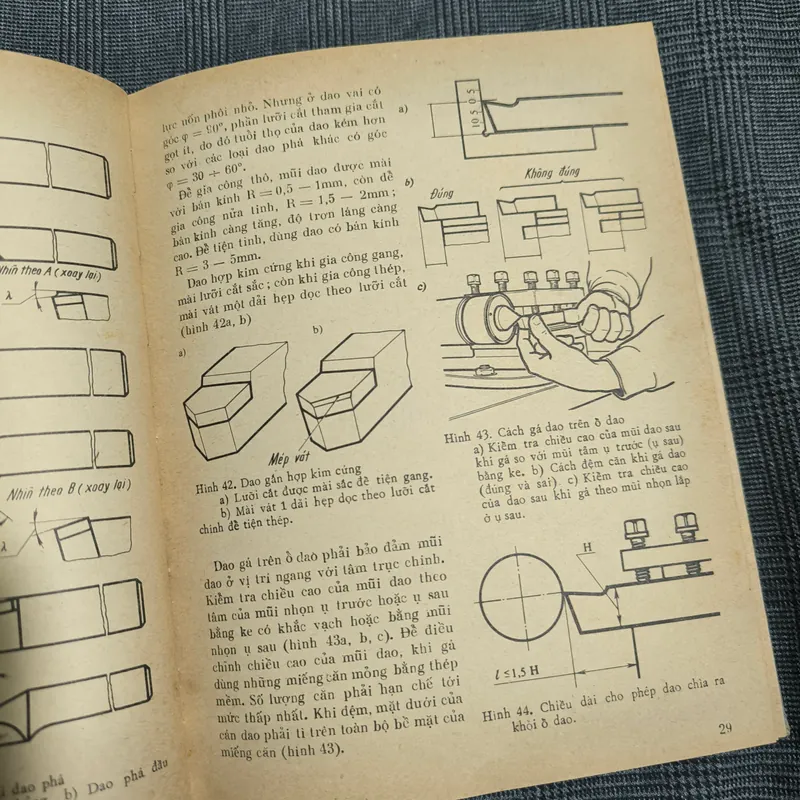 Nhìn theo A (xoay lại)
λ
Nhìn theo B (xoay lại)
λ
dao phá
b) Dao phá đầu
lực uốn phôi nhỏ. Nhưng ở dao vai có
góc φ = 90°, phần lưỡi cắt tham gia cắt
gọt ít, do đó tuổi thọ của dao kém hơn
so với các loại dao phá khác có góc
φ = 30 ÷ 60°.
Để gia công thô, mũi dao được mài
với bán kính R = 0,5 — 1mm, còn để
gia công nửa tinh, R = 1,5 — 2mm;
bán kính càng tăng, độ trơn láng càng
cao. Để tiện tinh, dùng dao có bán kính
R = 3 — 5mm.
Dao hợp kim cứng khi gia công gang,
mài lưỡi cắt sắc; còn khi gia công thép,
mài vát một dải hẹp dọc theo lưỡi cắt
(hình 42a, b)
a)
b)
Mép vát
Hình 42. Dao gắn hợp kim cứng
a) Lưỡi cắt được mài sắc để tiện gang.
b) Mài vát 1 dải hẹp dọc theo lưỡi cắt
chính để tiện thép.
Dao gá trên ổ dao phải bảo đảm mũi
dao ở vị trí ngang với tâm trục chính.
Kiểm tra chiều cao của mũi dao theo
tâm của mũi nhọn ụ trước hoặc ụ sau
bằng ke có khắc vạch hoặc bằng mũi
nhọn ụ sau (hình 43a, b, c). Để điều
chỉnh chiều cao của mũi dao, khi gá
dùng những miếng căn mỏng bằng thép
mềm. Số lượng căn phải hạn chế tới
mức thấp nhất. Khi đệm, mặt dưới của
cán dao phải tì trên toàn bộ bề mặt của
miếng căn (hình 43).
a)
10 5 0 5
b)
Đúng
Không đúng
c)
Hình 43. Cách gá dao trên ổ dao
a) Kiểm tra chiều cao của mũi dao sau
khi gá so với mũi tâm ụ trước (ụ sau)
bằng ke. b) Cách đệm căn khi gá dao
(đúng và sai). c) Kiểm tra chiều cao
của dao sau khi gá theo mũi nhọn lắp
ở ụ sau.
H
l ≤ 1,5 H
Hình 44. Chiều dài cho phép dao chìa ra
khỏi ổ dao.
29